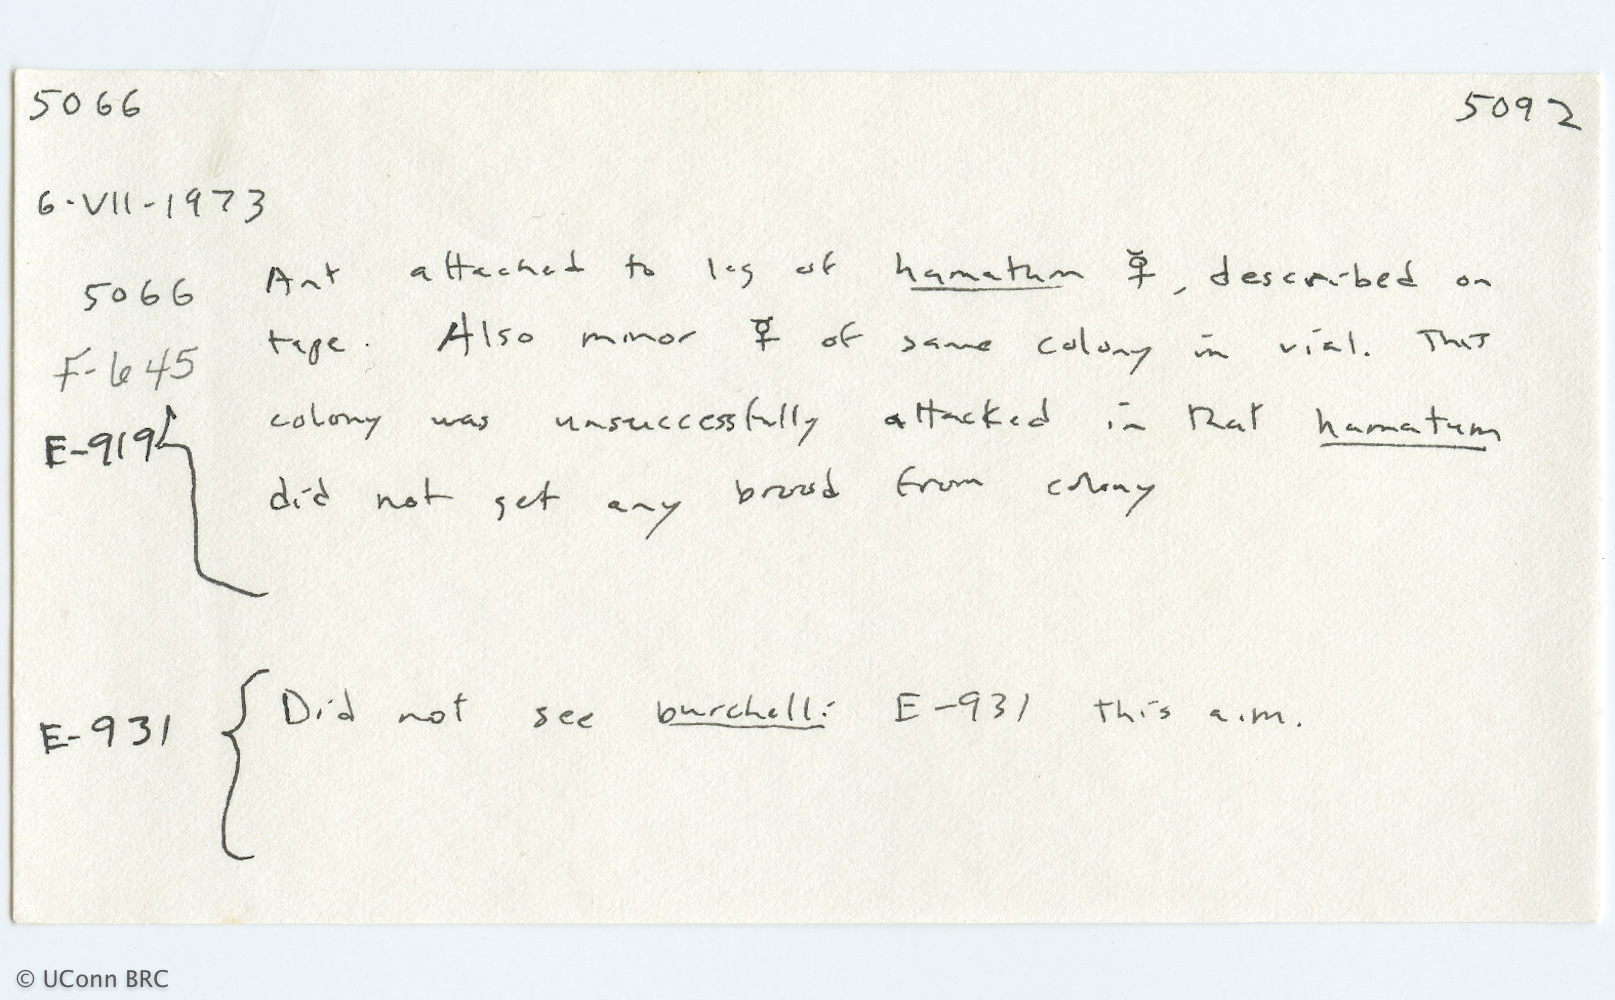 5066 5092
6-VII-1973
5066 Ant attached to leg of hamatum ☿, described on
F-645 tape. Also minor ☿ of same colony in vial. This
E-919 colony was unsuccessfully attacked in that hamatum
did not get any brood from colony
E-931 { Did not see burchelli E-931 this a.m.
© UConn BRC